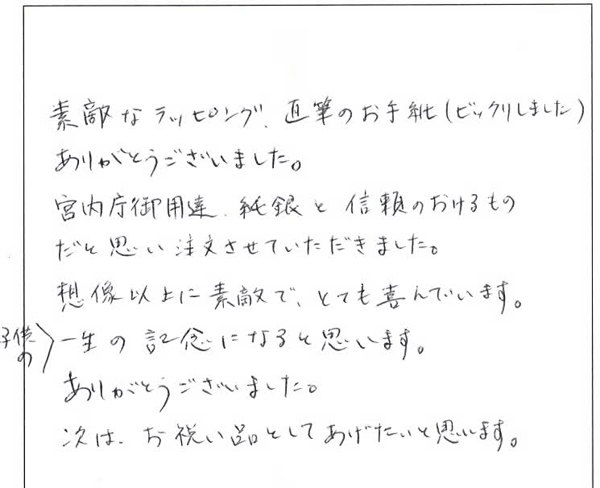 素敵なラッピング、直筆のお手紙(ビックリしました)
ありがとうございました。
宮内庁御用達、純銀と信頼のおけるもの
だと思い注文させていただきました。
想像以上に素敵で、とても喜んでいます。
子供の〉一生の記念になると思います。
ありがとうございました。
次は、お祝い品としてあげたいと思います。